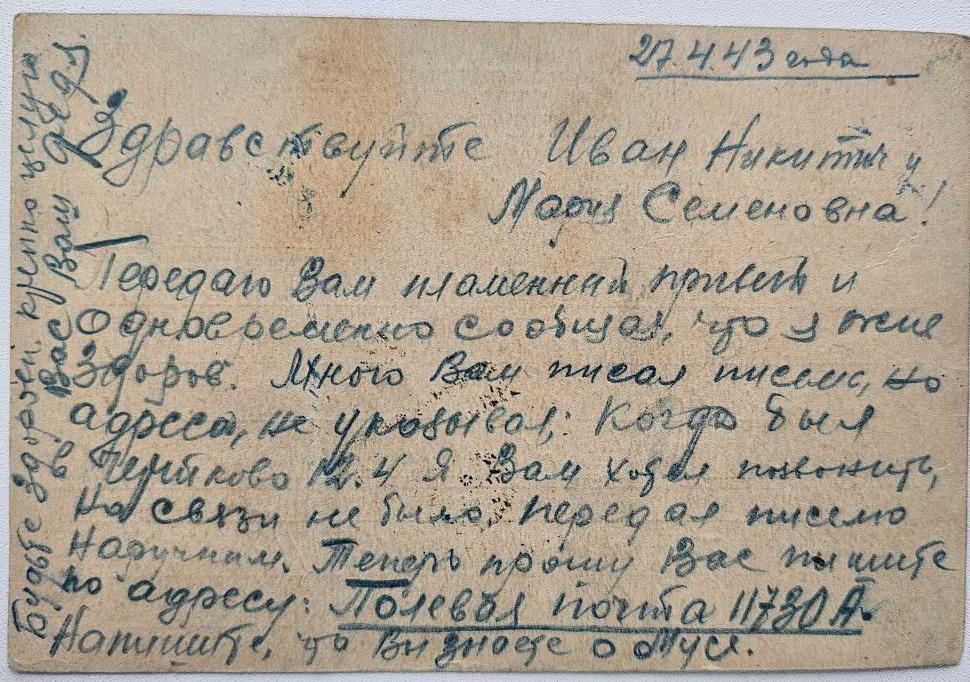 27.4.43 года
Здравствуйте Иван Никитич и
Мария Семеновна!
Передаю Вам пламенный привет и
одновременно сообщаю, что я жив
здоров. Много Вам писал писем, но
адреса, не указывал. Когда был
12.4 я Вам хотел позвонить,
но связи не было, передал письмо
наручным. Теперь прошу Вас пишите
по адресу: Полевая почта 11730 А.
Напишите, что Вы знаете о Мусе.
Будьте здоровы. крепко целую
Вас Ваш